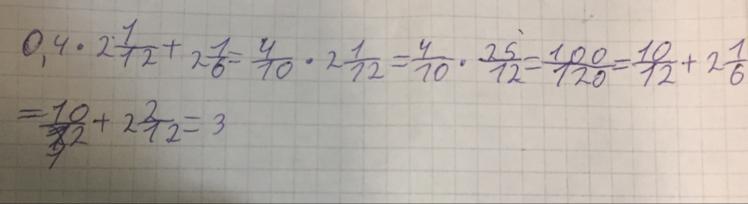 0,4 · 2 1/12 + 2 1/6 = 4/10 · 2 1/12 = 4/10 · 25/12 = 100/120 = 10/12 + 2 1/6
= 10/12 + 2 2/12 = 3